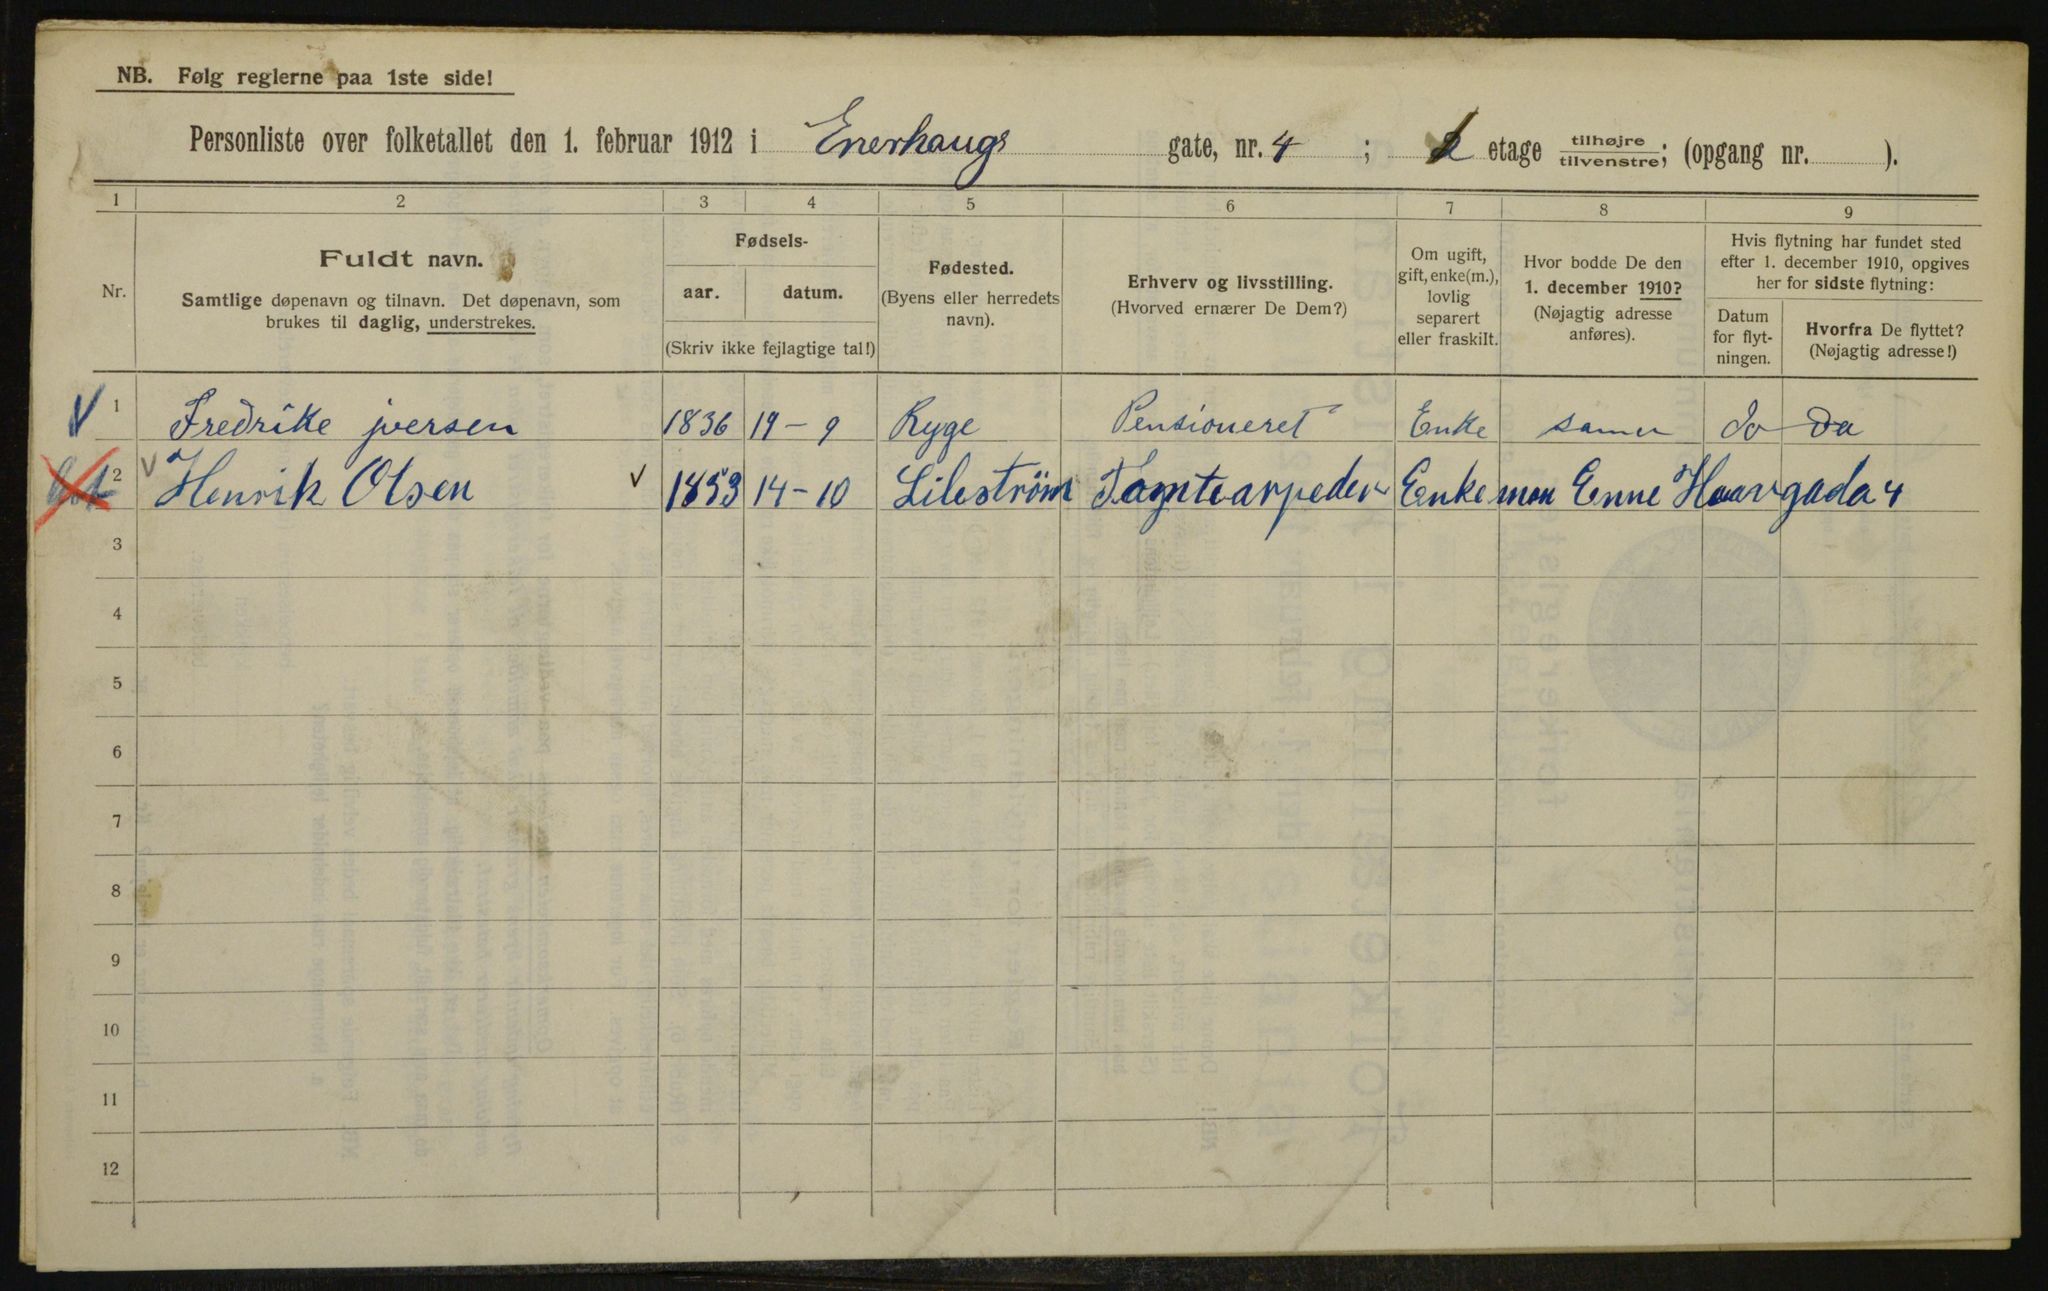 NB. Følg reglerne paa 1ste side!
Personliste over folketallet den 1. februar 1912 i Enerhaugs gate, nr. 4 ; 2 etage tilhøjre tilvenstre; (opgang nr. ).
1 2 3 4 5 6 7 8 9
Nr.
Fuldt navn.
Samtlige døpenavn og tilnavn. Det døpenavn, som
brukes til daglig, understrekes.
Fødsels-
aar. datum.
(Skriv ikke fejlagtige tal!)
Fødested.
(Byens eller herredets
navn).
Erhverv og livsstilling.
(Hvorved ernærer De Dem?)
Om ugift,
gift, enke(m.),
lovlig
separert
eller fraskilt.
Hvor bodde De den
1. december 1910?
(Nøjagtig adresse
anføres).
Hvis flytning har fundet sted
efter 1. december 1910, opgives
her for sidste flytning:
Datum
for flyt-
ningen.
Hvorfra De flyttet?
(Nøjagtig adresse!)
1 Fredrike jversen 1836 19-9 Ryge Pensioneret Enke samme do Do
2 Henrik Olsen 1853 14-10 Lileström Tomtearpeder Enkeman Enne Haavgada 4
3
4
5
6
7
8
9
10
11
12